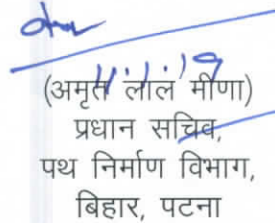 11.1.19
(अमृत लाल मीणा)
प्रधान सचिव,
पथ निर्माण विभाग,
बिहार, पटना